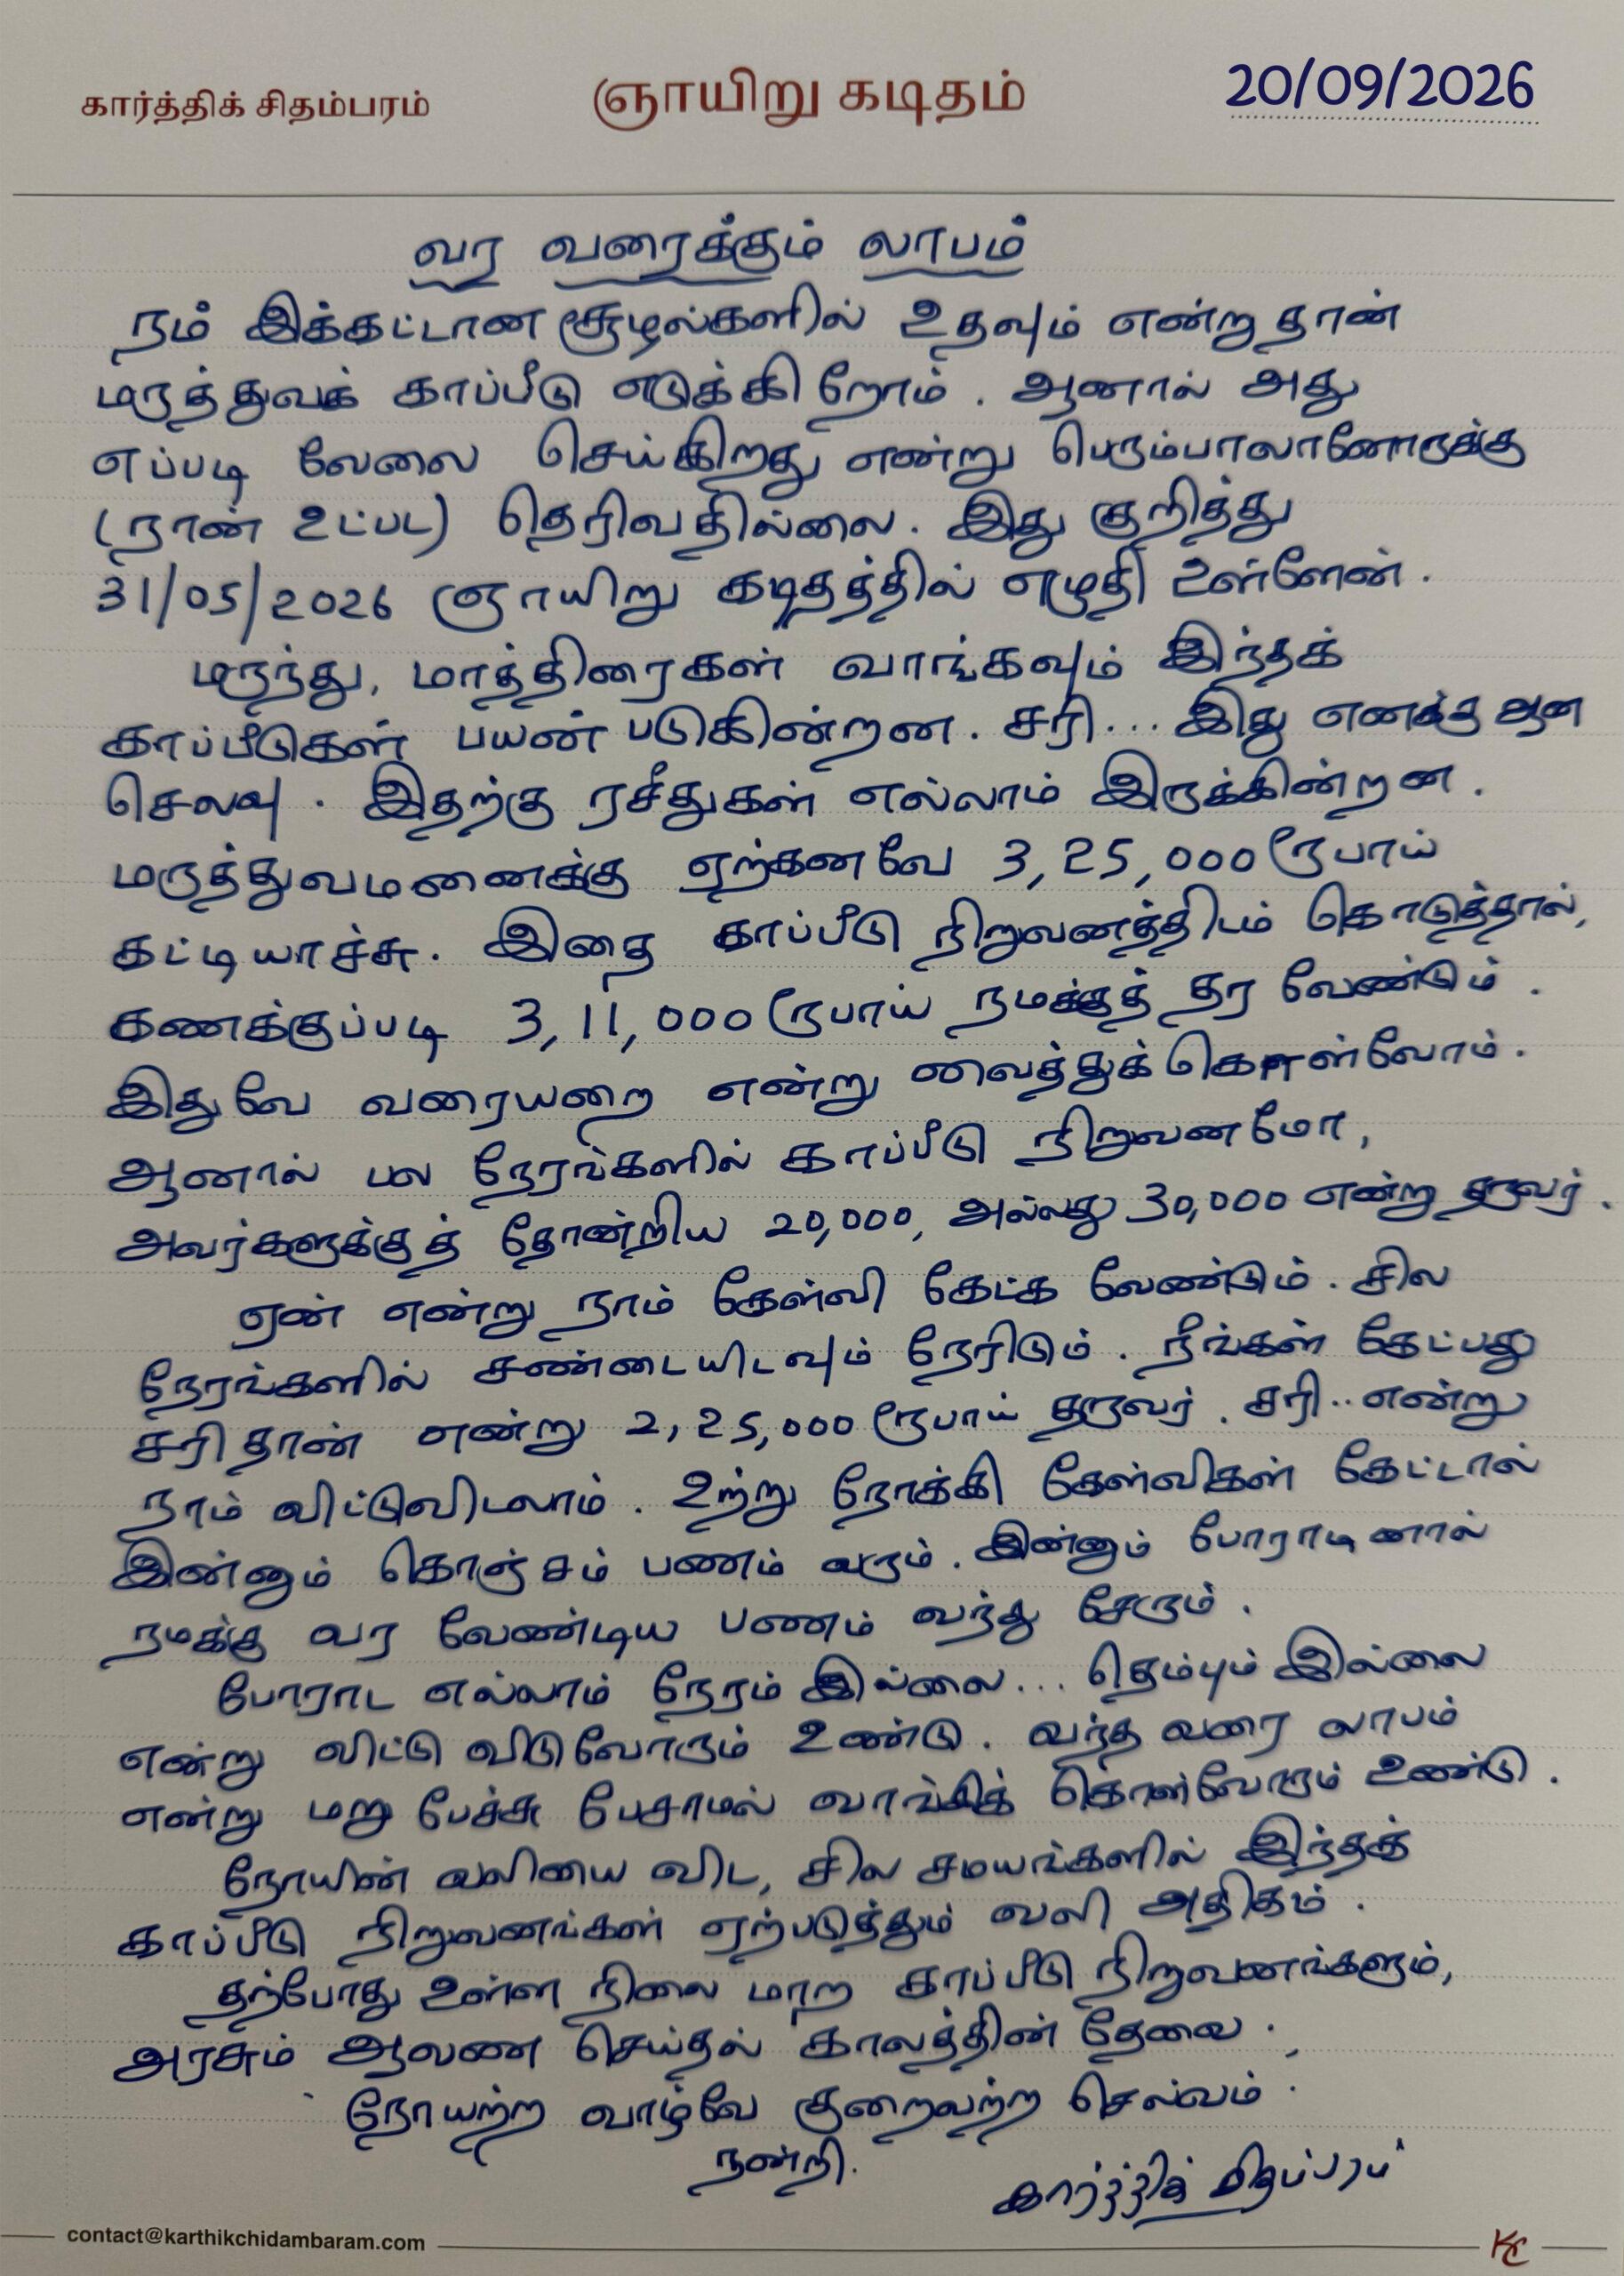 கார்த்திக் சிதம்பரம்
ஞாயிறு கடிதம்
20/09/2026
வர வரைக்கும் லாபம்
நம் இக்கட்டான சூழல்களில் உதவும் என்று தான்
மருத்துவக் காப்பீடு எடுக்கிறோம். ஆனால் அது
எப்படி வேலை செய்கிறது என்று பெரும்பாலானோருக்கு
(நான் உட்பட) தெரிவதில்லை. இது குறித்து
31/05/2026 ஞாயிறு கடிதத்தில் எழுதி உள்ளேன்.
மருந்து, மாத்திரைகள் வாங்கவும் இந்தக்
காப்பீடுகள் பயன் படுகின்றன. சரி... இது எனக்கு ஆன
செலவு. இதற்கு ரசீதுகள் எல்லாம் இருக்கின்றன.
மருத்துவமனைக்கு ஏற்கனவே 3,25,000 ரூபாய்
கட்டியாச்சு. இதை காப்பீடு நிறுவனத்திடம் கொடுத்தால்,
கணக்குப்படி 3,11,000 ரூபாய் நமக்குத் தர வேண்டும்.
இதுவே வரையறை என்று வைத்துக்கொள்வோம்.
ஆனால் பல நேரங்களில் காப்பீடு நிறுவனமோ,
அவர்களுக்குத் தோன்றிய 20,000, அல்லது 30,000 என்று தருவர்.
ஏன் என்று நாம் கேள்வி கேட்க வேண்டும். சில
நேரங்களில் சண்டையிடவும் நேரிடும். நீங்கள் கேட்பது
சரி தான் என்று 2,25,000 ரூபாய் தருவர். சரி.. என்று
நாம் விட்டுவிடலாம். உற்று நோக்கி கேள்விகள் கேட்டால்
இன்னும் கொஞ்சம் பணம் வரும். இன்னும் போராடினால்
நமக்கு வர வேண்டிய பணம் வந்து சேரும்.
போராட எல்லாம் நேரம் இல்லை... தெம்பும் இல்லை
என்று விட்டு விடுவோரும் உண்டு. வந்த வரை லாபம்
என்று மறு பேச்சு பேசாமல் வாங்கிக் கொள்வோரும் உண்டு.
நோயின் வலியை விட, சில சமயங்களில் இந்தக்
காப்பீடு நிறுவனங்கள் ஏற்படுத்தும் வலி அதிகம்.
தற்போது உள்ள நிலை மாற காப்பீடு நிறுவனங்களும்,
அரசும் ஆவண செய்தல் காலத்தின் தேவை.
நோயற்ற வாழ்வே குறைவற்ற செல்வம்.
நன்றி.
கார்த்திக் சிதம்பரம்
contact@karthikchidambaram.com
KC